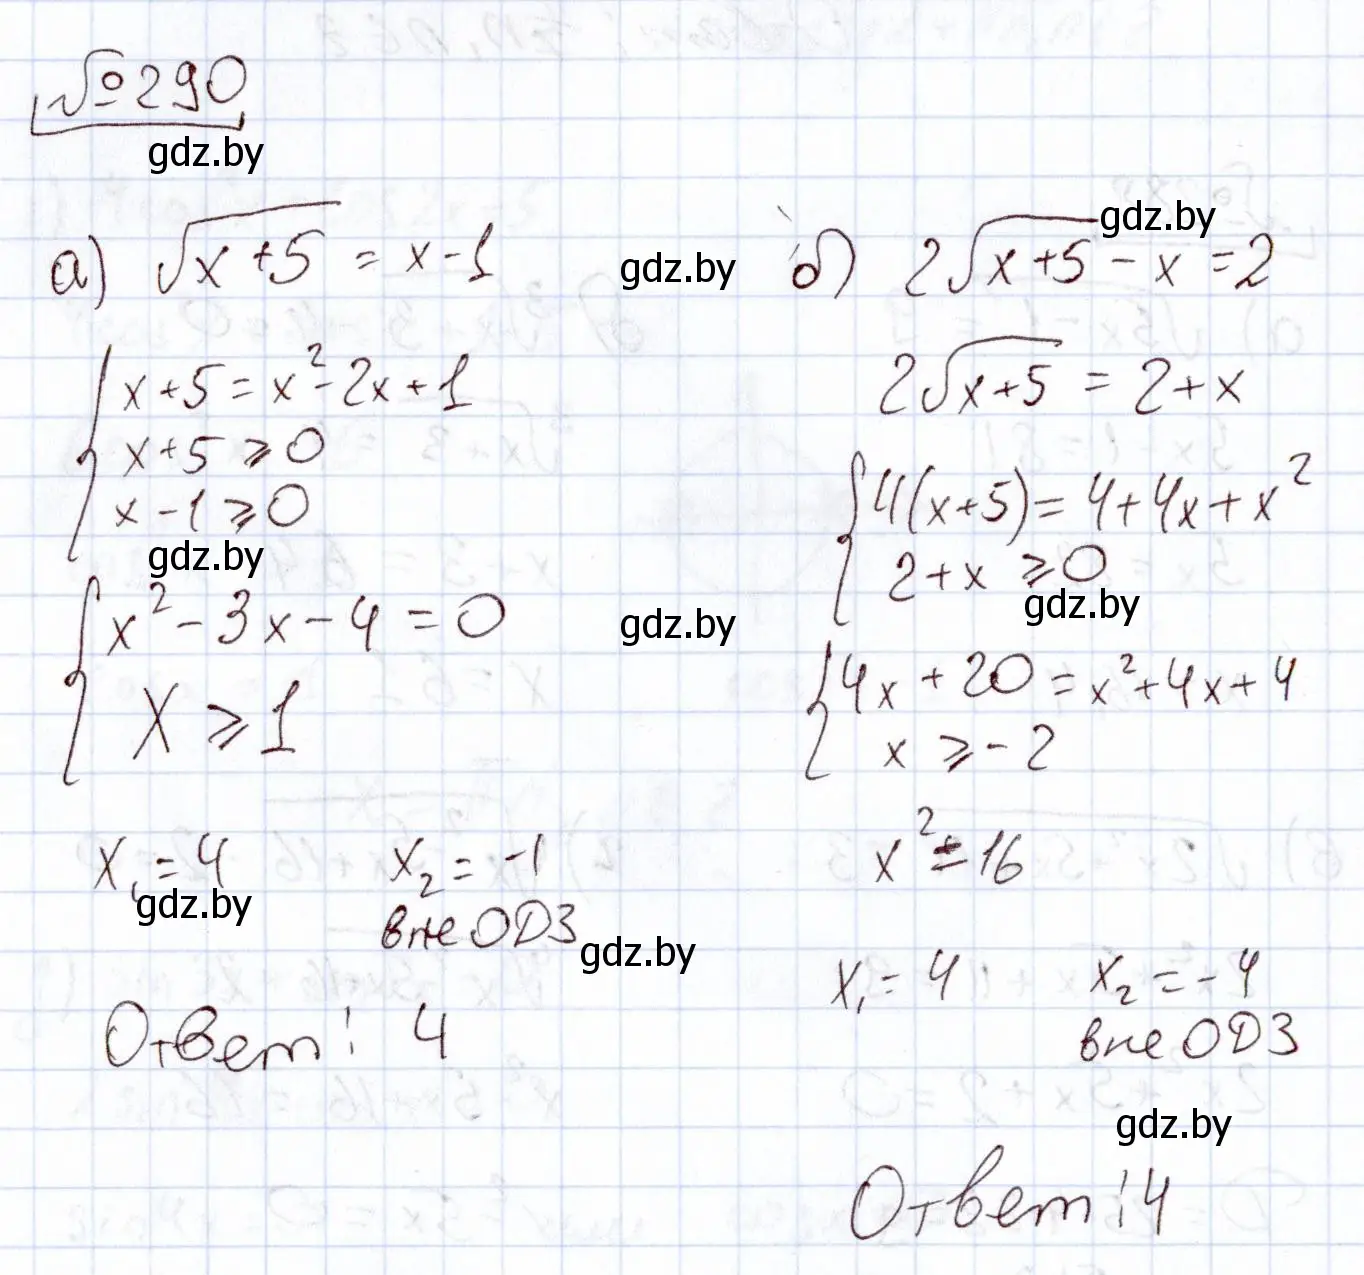 №290
gdz.by
а) √(x+5) = x-1
gdz.by
{ x+5 = x²-2x+1
x+5 ⩾ 0
x-1 ⩾ 0
gdz.by
{ x²-3x-4 = 0
x ⩾ 1
gdz.by
x₁ = 4 x₂ = -1
gdz.by
вне ОДЗ
gdz.by
Ответ: 4
gdz.by
б) 2√(x+5) - x = 2
2√(x+5) = 2+x
{ 4(x+5) = 4+4x+x²
2+x ⩾ 0
gdz.by
{ 4x+20 = x²+4x+4
x ⩾ -2
x² = 16
x₁ = 4 x₂ = -4
вне ОДЗ
gdz.by
Ответ: 4